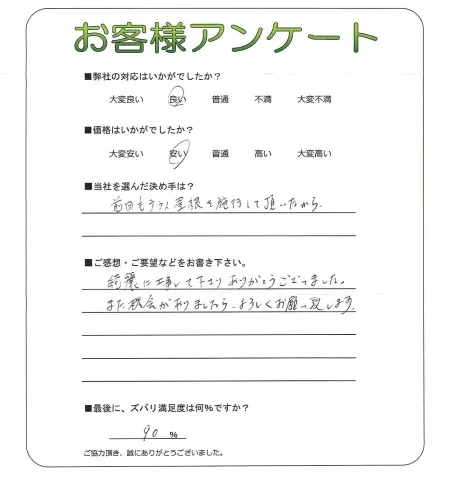 お客様アンケート
■弊社の対応はいかがでしたか？
大変良い 良い 普通 不満 大変不満
■価格はいかがでしたか？
大変安い 安い 普通 高い 大変高い
■当社を選んだ決め手は？
前回もテラス屋根を施行して頂いたから。
■ご感想・ご要望などをお書き下さい。
綺麗に工事して下さりありがとうございました。
また機会がありましたら、よろしくお願い致します。
■最後に、ズバリ満足度は何%ですか？
90 %
ご協力頂き、誠にありがとうございました。